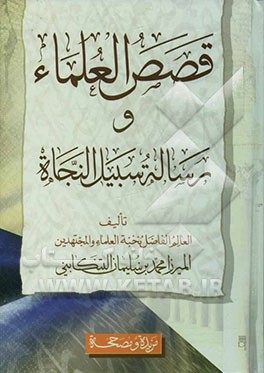 قصص العلماء
و
رسالة سبيل النجاة
تأليف
العالم الفاضل نخبة العلماء والمجتهدين
الميرزا محمد بن سليمان التنكابني
مزيدة ومصححة